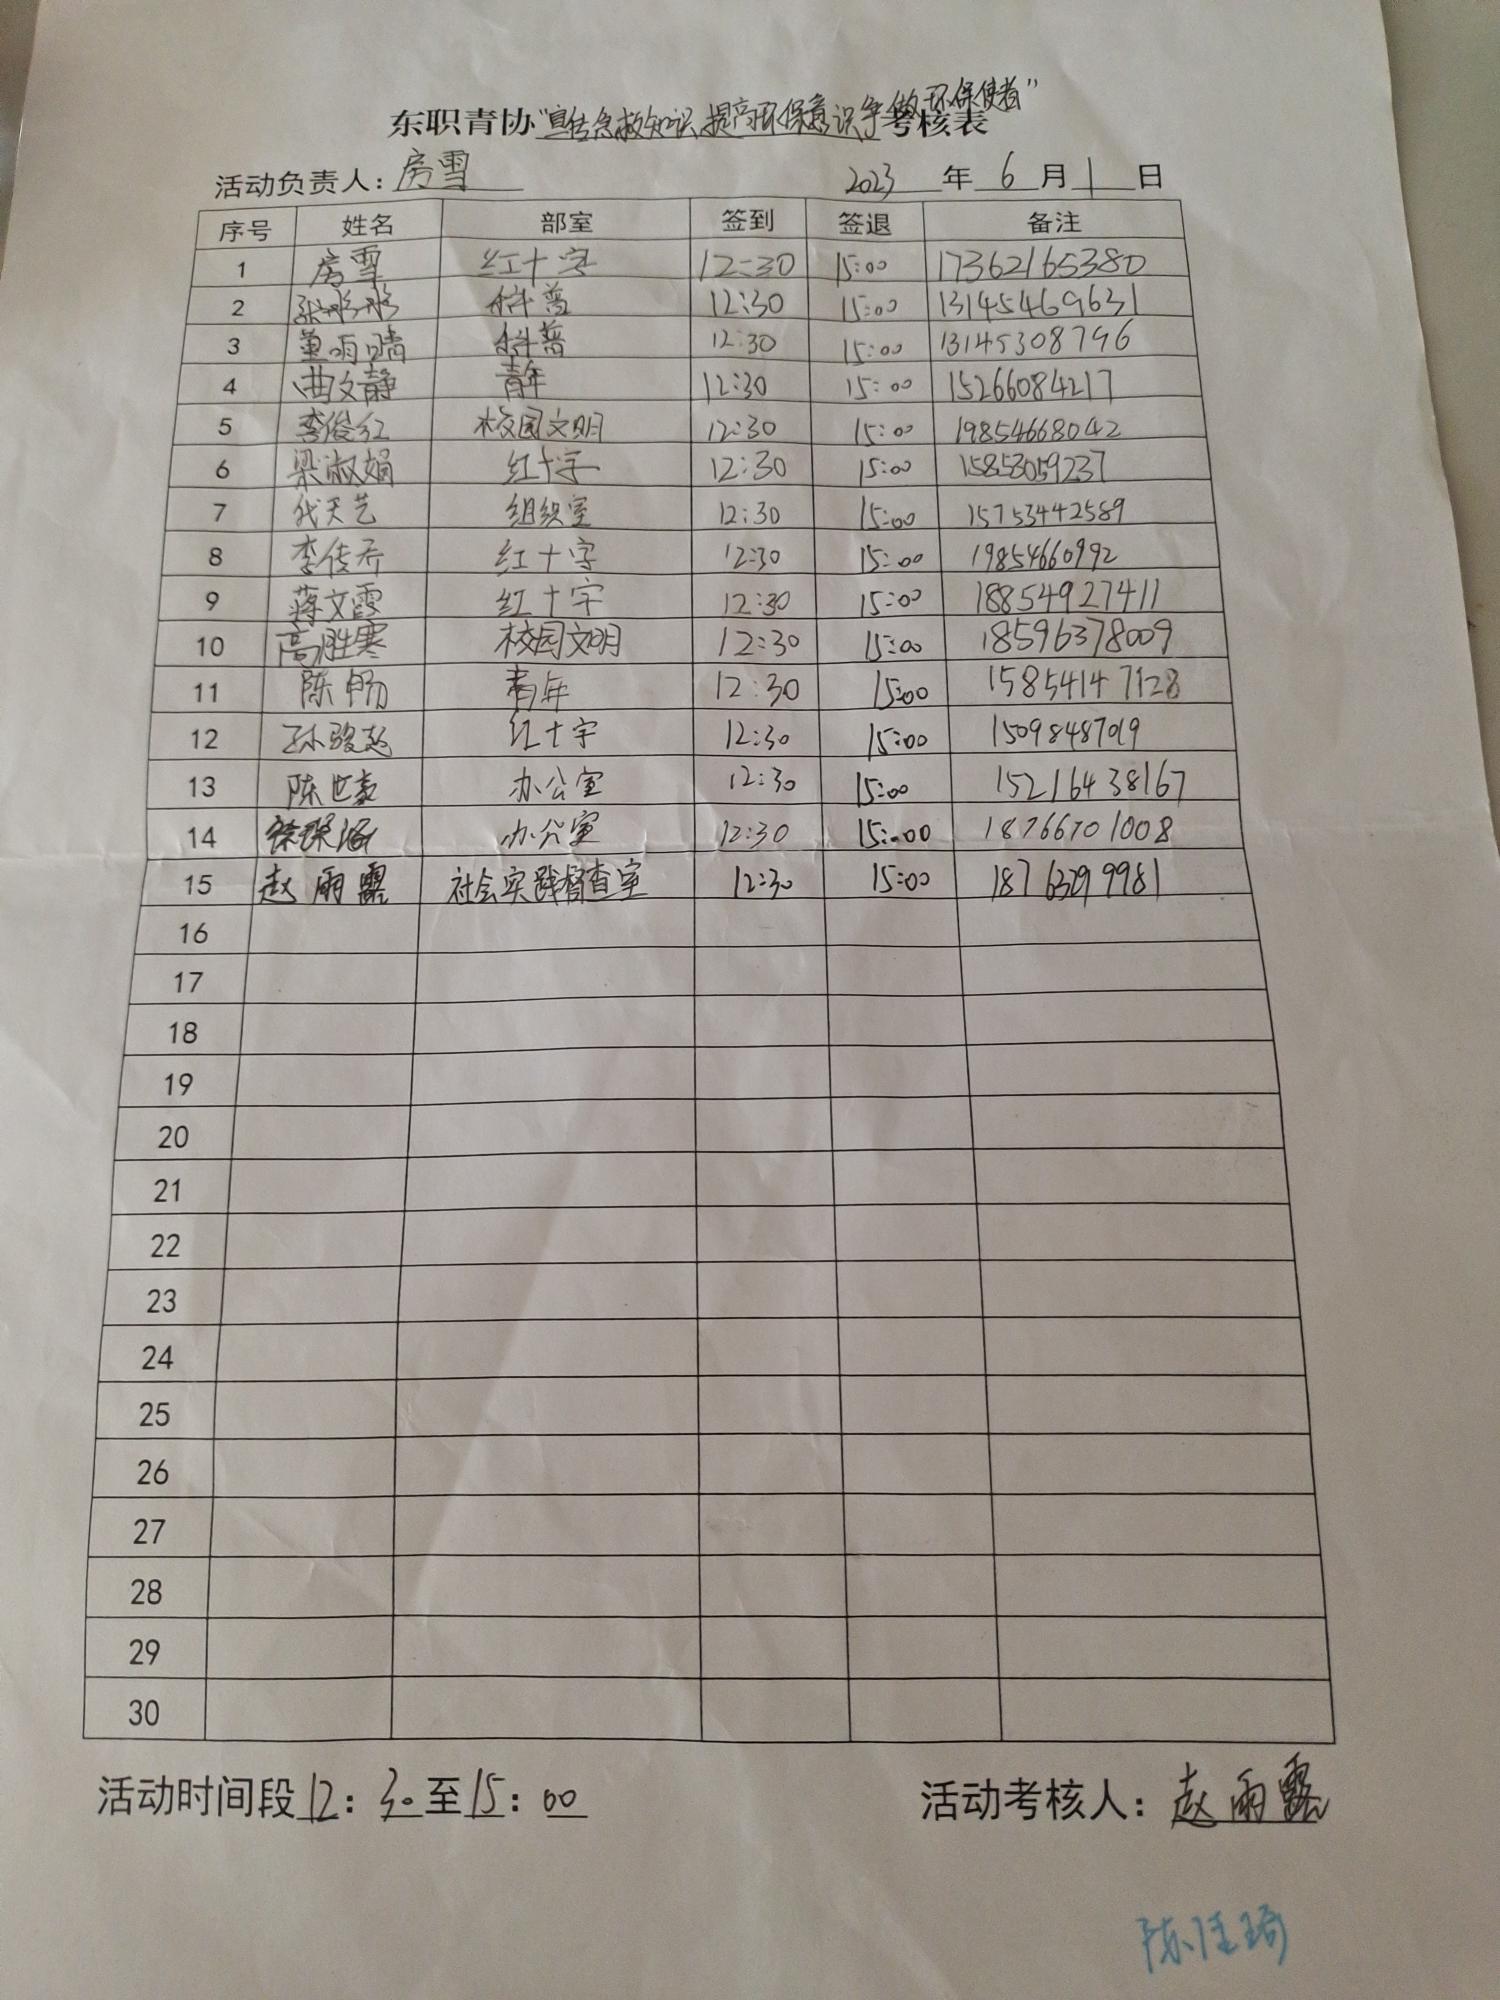 东职青协"宣传急救知识,提高环保意识争做环保使者"考核表
活动负责人: 房雪 2023 年 6 月 1 日
序号 姓名 部室 签到 签退 备注
1 房雪 红十字 12:30 15:00 17362165380
2 张彤彤 科普 12:30 15:00 13145469631
3 董雨晴 科普 12:30 15:00 13145308796
4 曲文静 青年 12:30 15:00 15266084217
5 李俊红 校园文明 12:30 15:00 19854668042
6 梁淑娟 红十字 12:30 15:00 15853059237
7 代天艺 组织室 12:30 15:00 15753442589
8 李传乔 红十字 12:30 15:00 19854660992
9 蒋文霞 红十字 12:30 15:00 18854927411
10 高胜寒 校园文明 12:30 15:00 18596378009
11 陈畅 青年 12:30 15:00 15854147128
12 孙骏 红十字 12:30 15:00 15098487019
13 陈世豪 办公室 12:30 15:00 15216438167
14 办公室 12:30 15:00 18766701008
15 赵雨露 社会实践督查室 12:30 15:00 18763299981
16
17
18
19
20
21
22
23
24
25
26
27
28
29
30
活动时间段 12: 30 至 15: 00 活动考核人: 赵雨露
陈佳琦